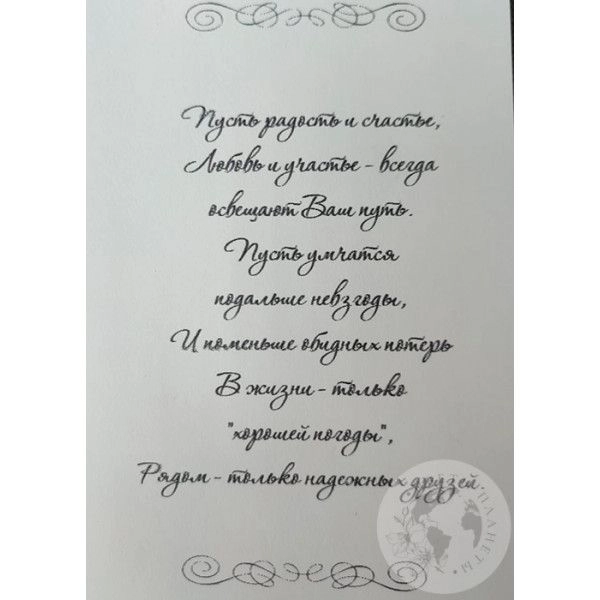 Пусть радость и счастье,
Любовь и участье - всегда
освещают Ваш путь.
Пусть умчатся
подальше невзгоды,
И поменьше обидных потерь
В жизни - только
"хорошей погоды",
Рядом - только надежных друзей.
ПЛАНЕТЫ